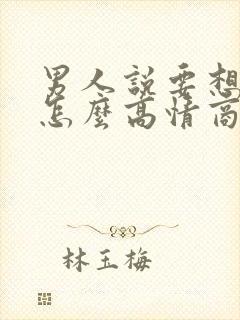 男人說要想
怎麼高情商
林玉梅